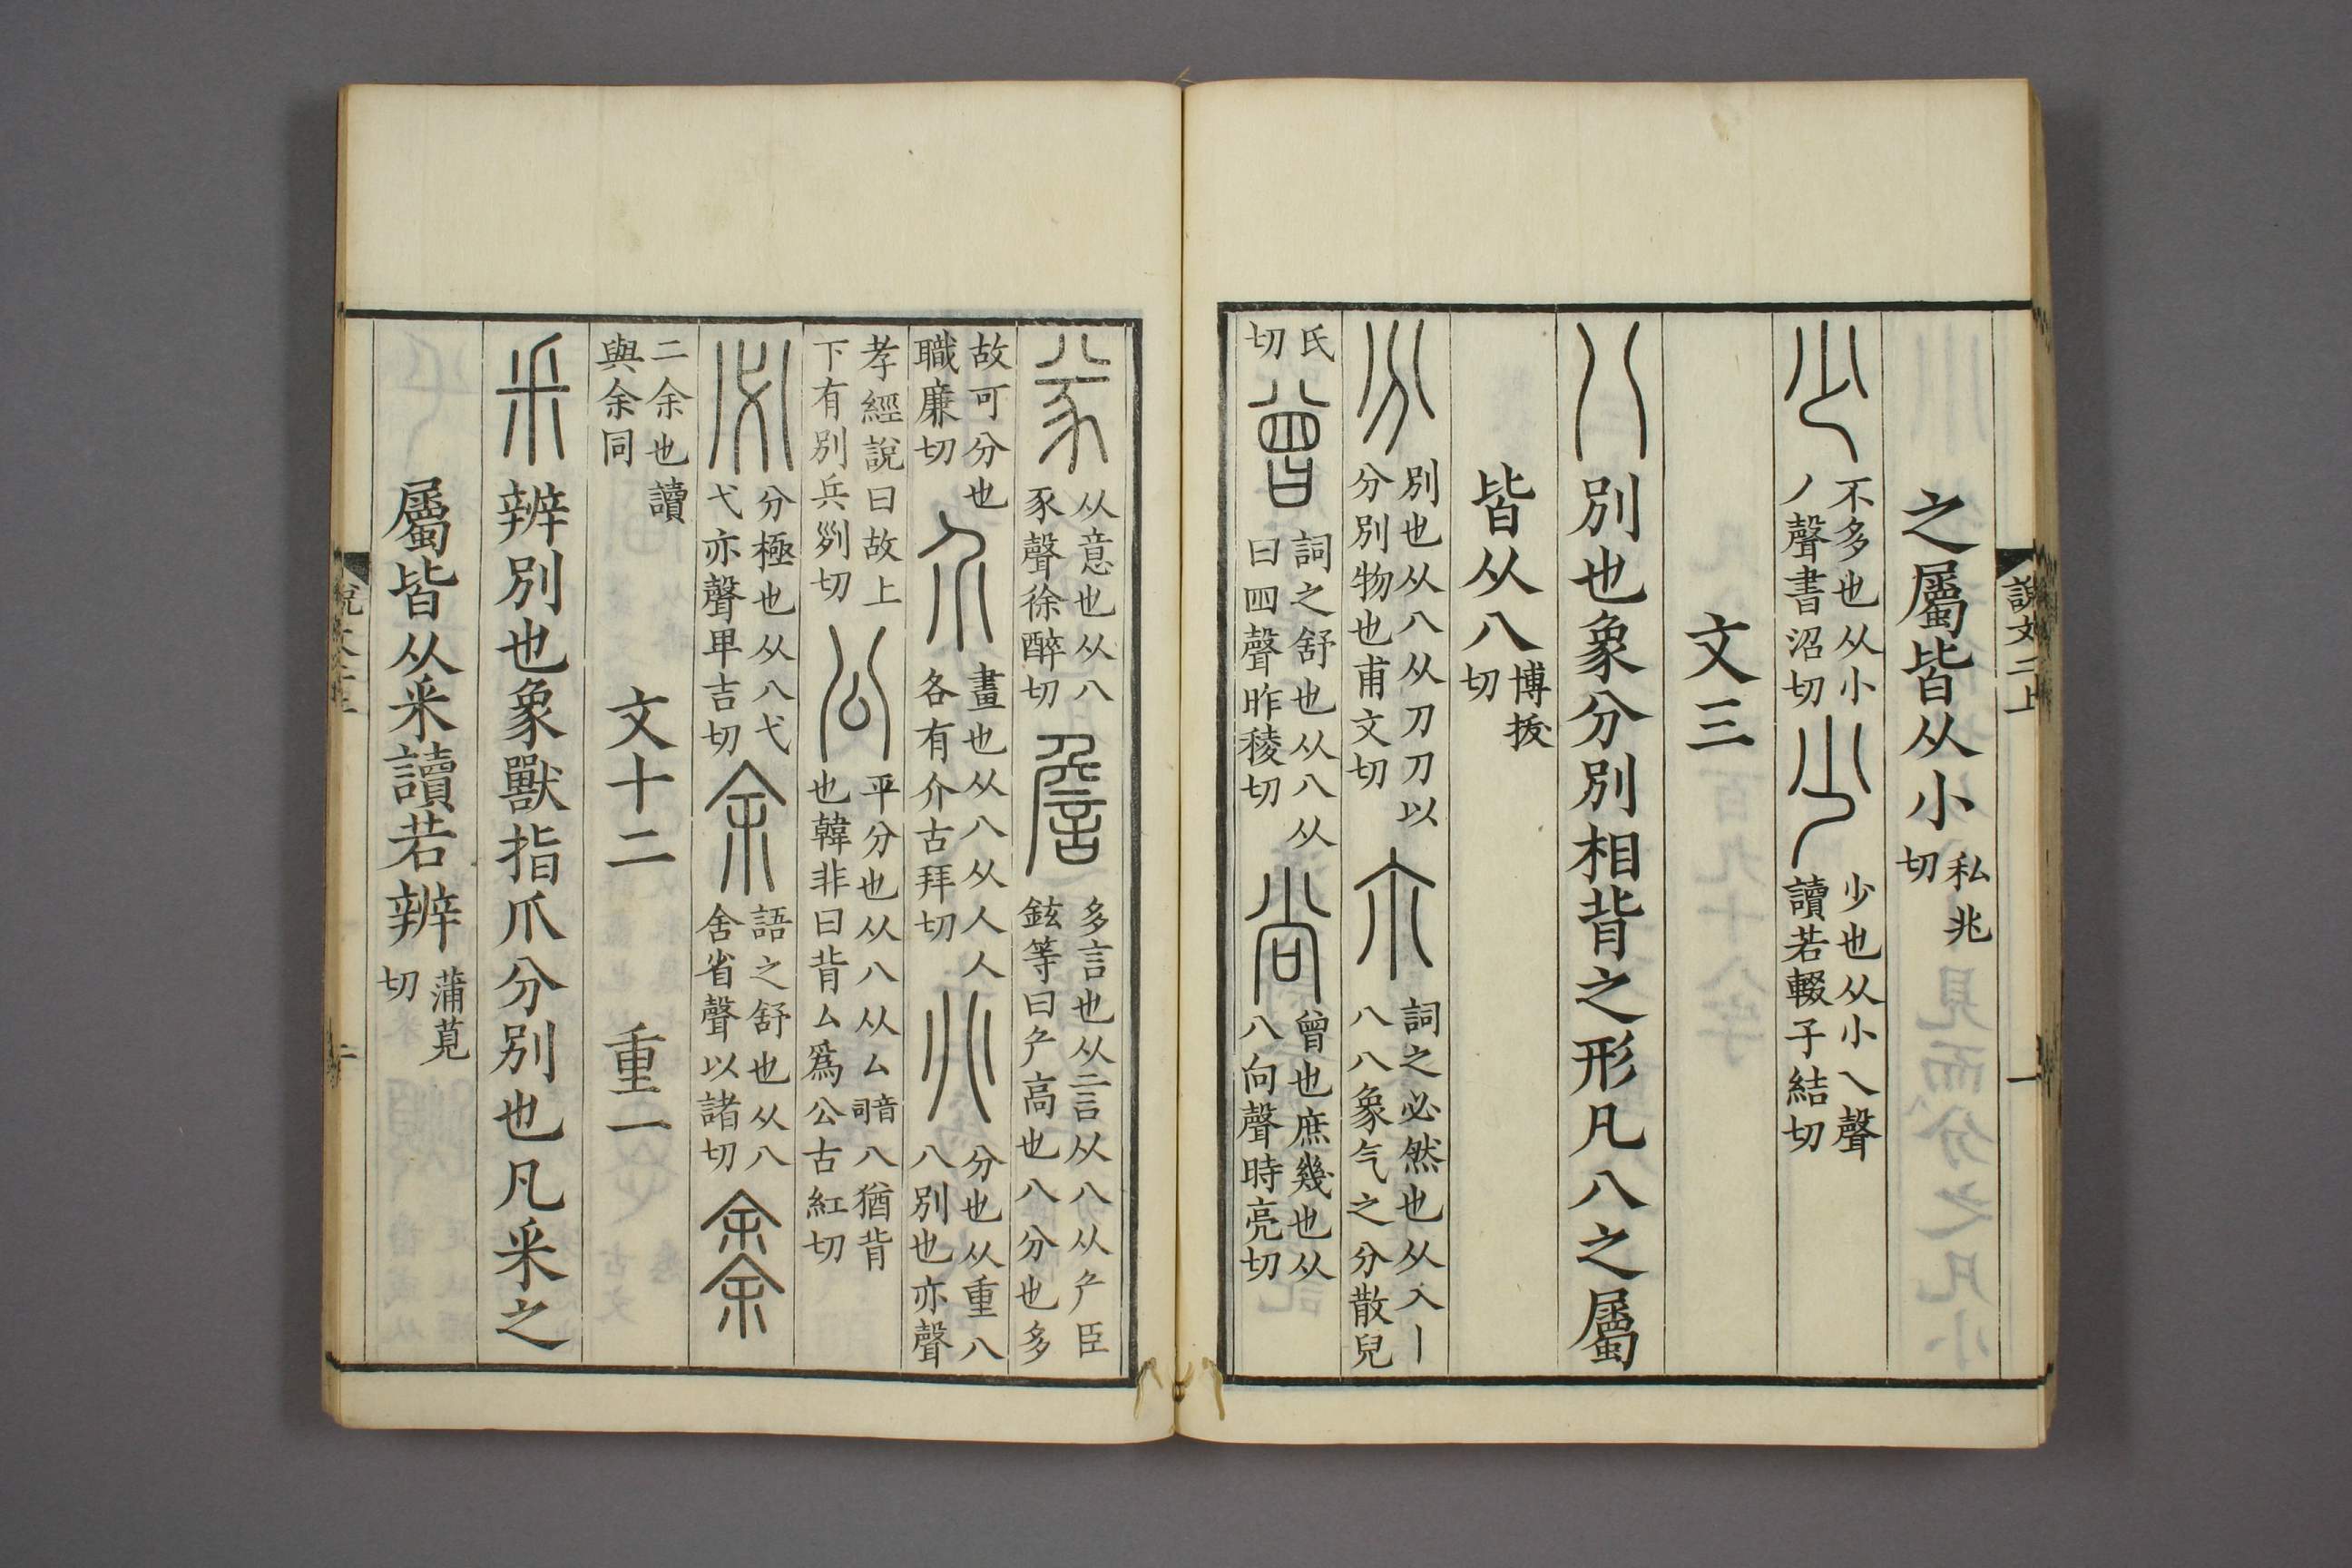 說文二上 一
之屬皆从小私兆切
少不多也从小丿聲書沼切𡮐少也从小乀聲讀若輟子結切
文三
八別也象分別相背之形凡八之屬
皆从八博拔切
分別也从八从刀刀以分別物也甫文切尒詞之必然也从入丨八八象气之分散兒
氏切曾詞之舒也从八从曰四聲昨稜切尚曾也庶幾也从八向聲時亮切
㒸从意也从八豕聲徐醉切詹多言也从言从八从厃臣鉉等曰厃高也八分也多
故可分也職廉切介畫也从八从人人各有介古拜切𠔁分也从重八八別也亦聲
孝經說曰故上下有別兵列切公平分也从八从厶音司八猶背也韓非曰背厶爲公古紅切
必分極也从八弋弋亦聲卑吉切余語之舒也从八舍省聲以諸切𠎳
二余也讀與余同 文十二 重一
釆辨別也象獸指爪分別也凡釆之
屬皆从釆讀若辨蒲莧切